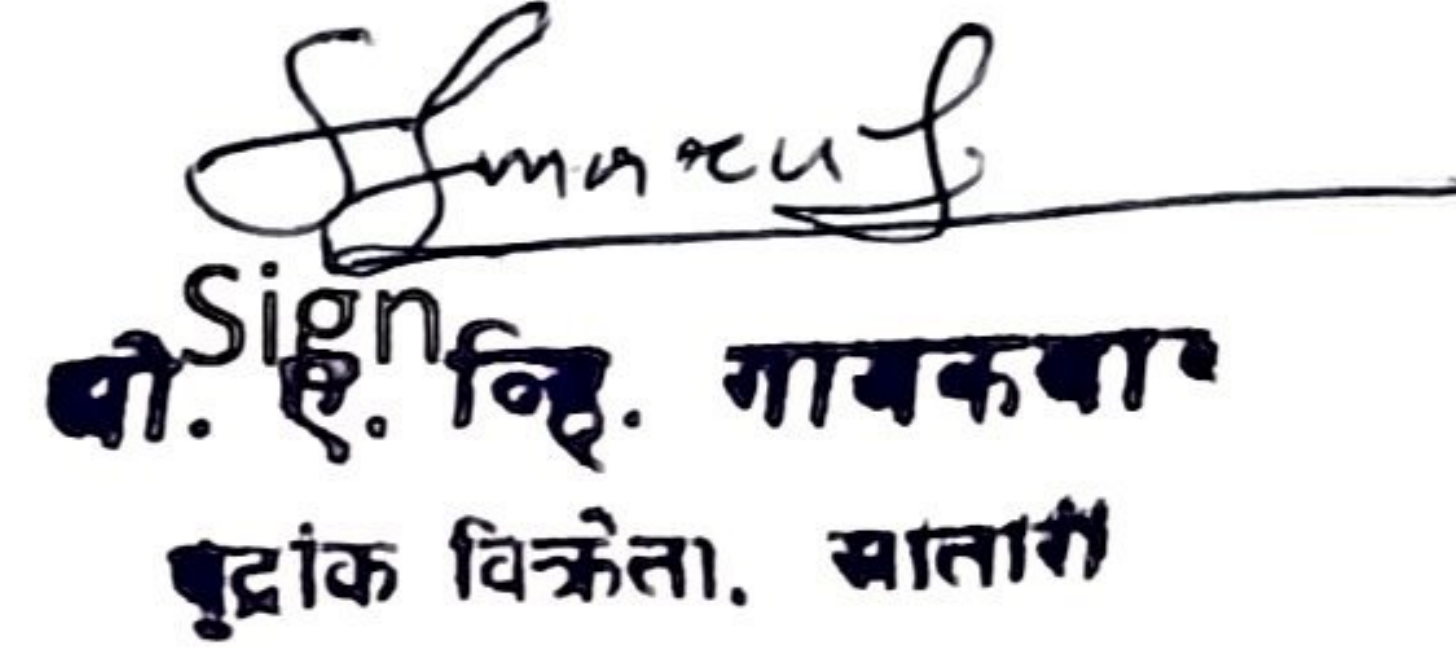 Sign
ए. व्हि. गायकवाड
मुद्रांक विक्रेता. सातारा